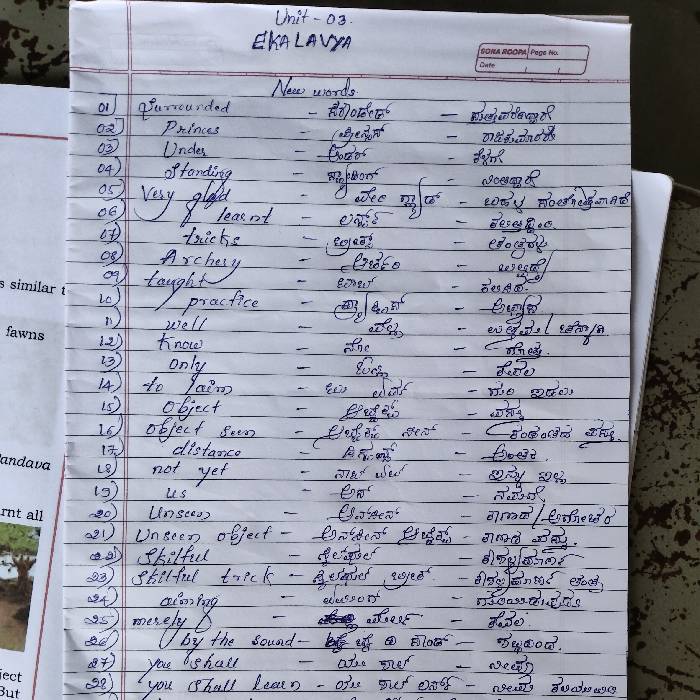 Unit - 03.
EKALAVYA
SONA ROOPA Page No.
Date
New words
01) Surrounded - ಸರೌಂಡೆಡ್ - ಸುತ್ತುವರೆದಿದ್ದಾರೆ
02) Princes - ಪ್ರಿನ್ಸಸ್ - ರಾಜಕುಮಾರರು
03) Under - ಅಂಡರ್ - ಕೆಳಗೆ
04) Standing - ಸ್ಟ್ಯಾಂಡಿಂಗ್ - ನಿಂತಿದ್ದಾರೆ
05) Very glad - ವೇರಿ ಗ್ಲ್ಯಾಡ್ - ಬಹಳ ಸಂತೋಷವಾಗಿದೆ
06) learnt - ಲರ್ನ್ಟ್ -
07) tricks - ಟ್ರಿಕ್ಸ್ - ತಂತ್ರಗಳು
08) Archery - ಆರ್ಚರಿ - ಬಿಲ್ವಿದ್ಯೆ
09) taught - ಟಾಟ್ - ಕಲಿಸಿದ.
10) practice - ಪ್ರ್ಯಾಕ್ಟಿಸ್ - ಅಭ್ಯಾಸ
11) well - ವೆಲ್ - ಉತ್ತಮ/
12) Know - ನೋ - ಗೊತ್ತು.
13) only - ಓನ್ಲಿ - ಕೇವಲ
14) to aim - ಟು ಏಮ್ - ಗುರಿ ಇಡಲು
15) object - ಆಬ್ಜೆಕ್ಟ್ - ವಸ್ತು
16) object seen - ಆಬ್ಜೆಕ್ಟ್ ಸೀನ್ - ವಸ್ತು.
17) distance - ಡಿಸ್ಟನ್ಸ್ - ಅಂತರ
18) not yet - ನಾಟ್ ಯಟ್ - ಇನ್ನು ಇಲ್ಲ
19) us - ಅಸ್ - ನಮಗೆ
20) Unseen - ಅನ್‌ಸೀನ್ - ಕಾಣದ/ಅಗೋಚರ
21) Unseen object - ಅನ್‌ಸೀನ್ ಆಬ್ಜೆಕ್ಟ್ - ಕಾಣದ ವಸ್ತು.
22) Skilful - ಸ್ಕಿಲ್‌ಫುಲ್ - ಕೌಶಲ್ಯಪೂರ್ಣ
23) Skilful trick - ಸ್ಕಿಲ್‌ಫುಲ್ ಟ್ರಿಕ್ - ಕೌಶಲ್ಯಪೂರ್ಣ ತಂತ್ರ
24) aiming - ಏಮಿಂಗ್ -
25) merely - ಮೇರ್ಲಿ - ಕೇವಲ
26) by the sound - ಬೈ ದಿ ಸೌಂಡ್ - ಶಬ್ದದಿಂದ.
27) you shall - ಯು ಶಾಲ್ - ನೀವು
28) you shall learn - ಯು ಶಾಲ್ ಲರ್ನ್ - ನೀವು
s similar t
fawns
Pandava
rnt all
ject
But